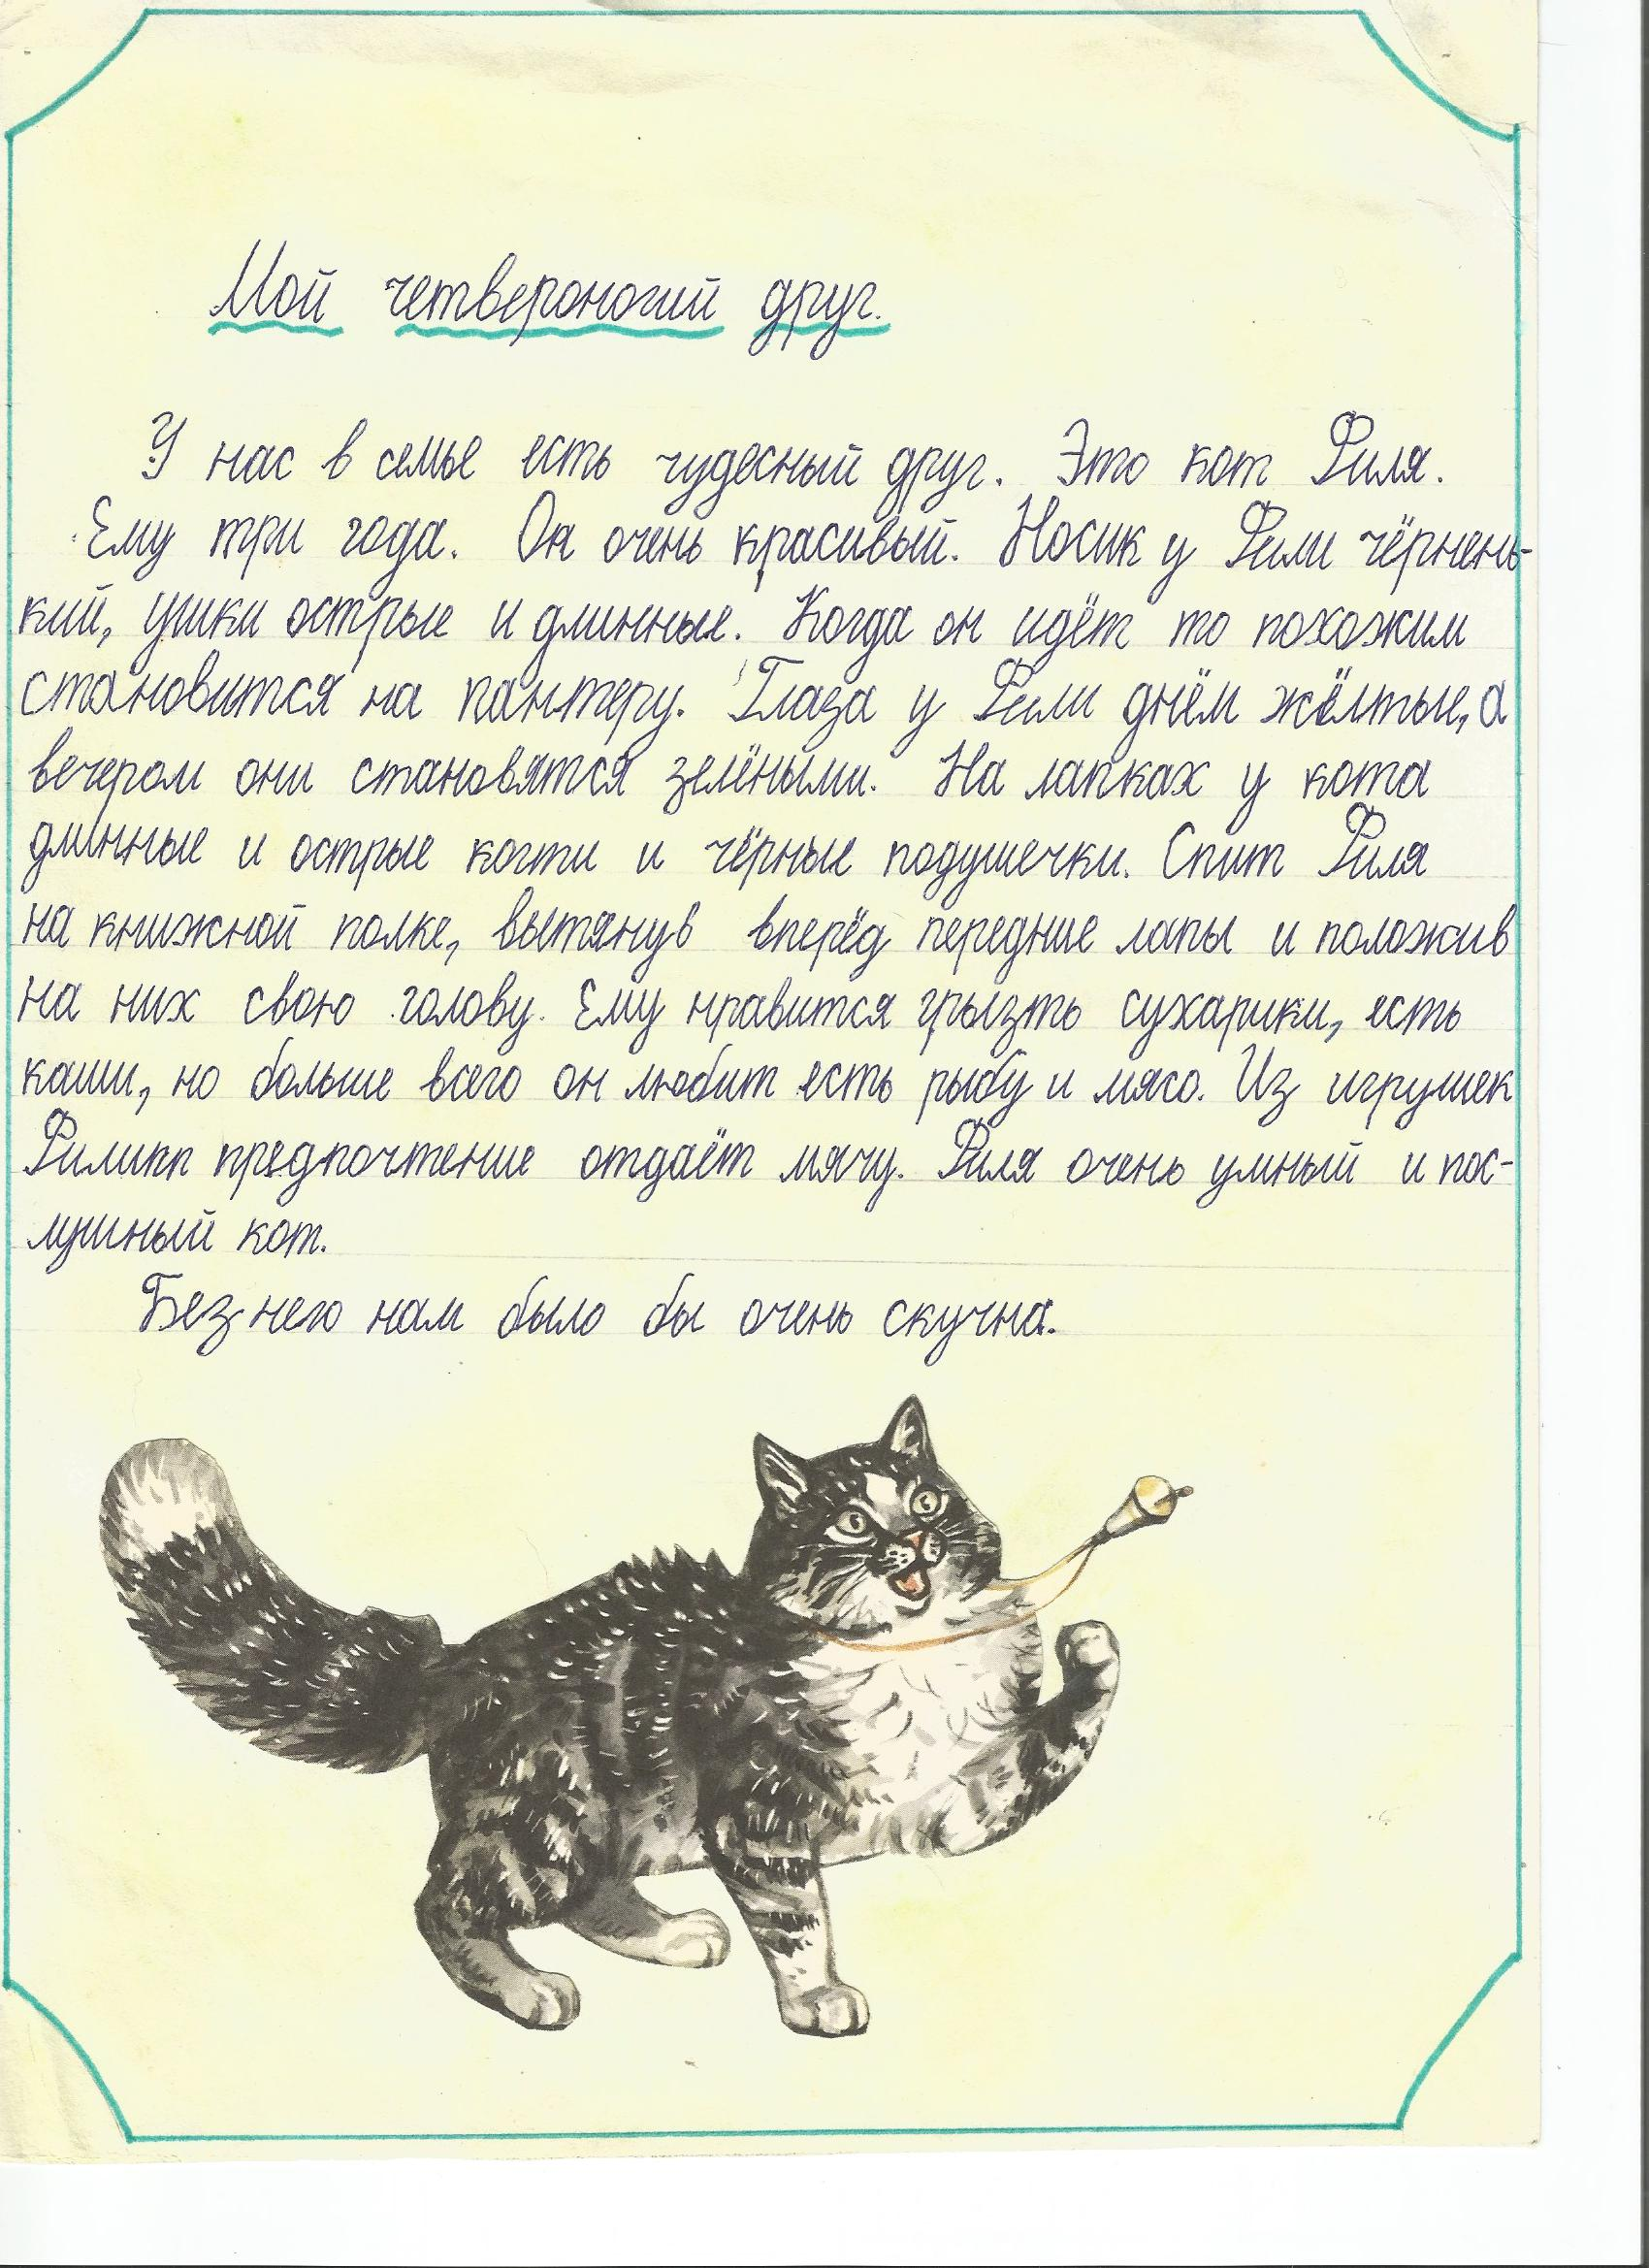 Мой четвероногий друг.
У нас в семье есть чудесный друг. Это кот Филя.
Ему три года. Он очень красивый. Носик у Фили чёрнень-
кий, ушки острые и длинные. Когда он идёт то похожим
становится на пантеру. Глаза у Фили днём жёлтые, а
вечером они становятся зелёными. На лапках у кота
длинные и острые когти и чёрные подушечки. Спит Филя
на книжной полке, вытянув вперёд передние лапы и положив
на них свою голову. Ему нравится грызть сухарики, есть
каши, но больше всего он любит есть рыбу и мясо. Из игрушек
Филипп предпочтение отдаёт мячу. Филя очень умный и пос-
лушный кот.
Без него нам было бы очень скучна.